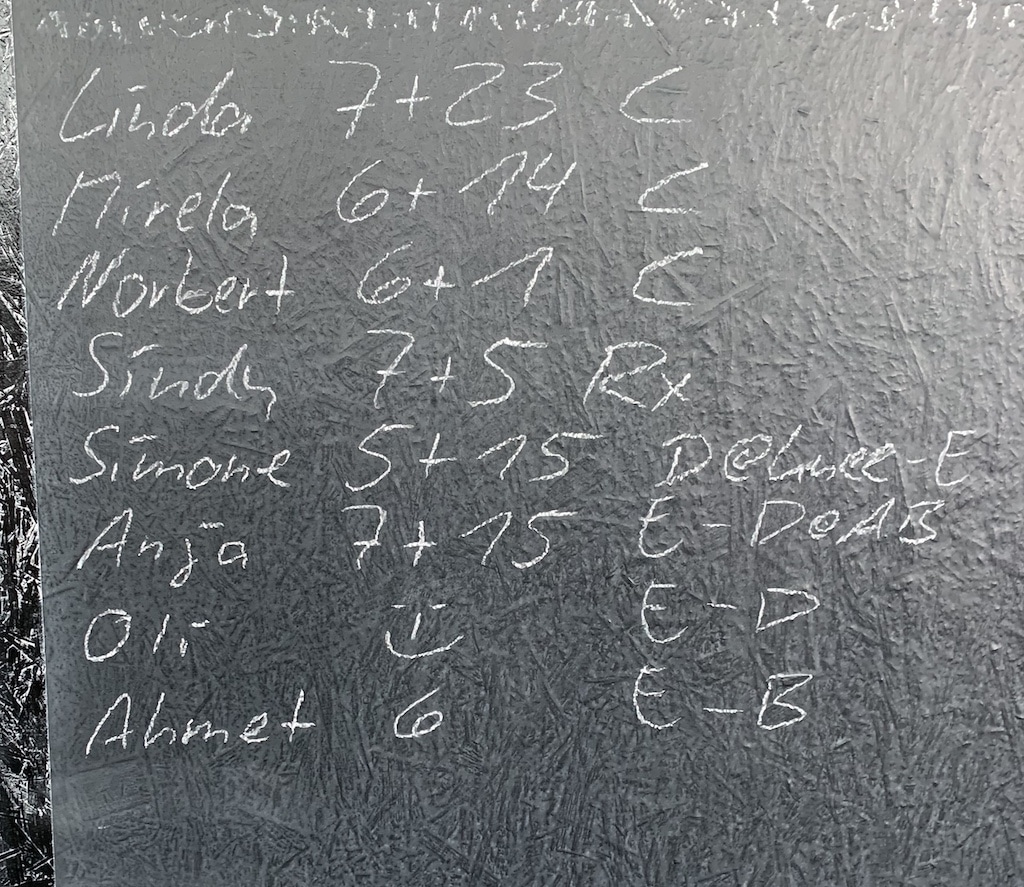 Linda 7+23 C
Mirela 6+14 C
Norbert 6+1 C
Sindy 7+5 Rx
Simone 5+15 D@ -E
Anja 7+15 E-D@AB
Oli E-D
Ahmet 6 E-B